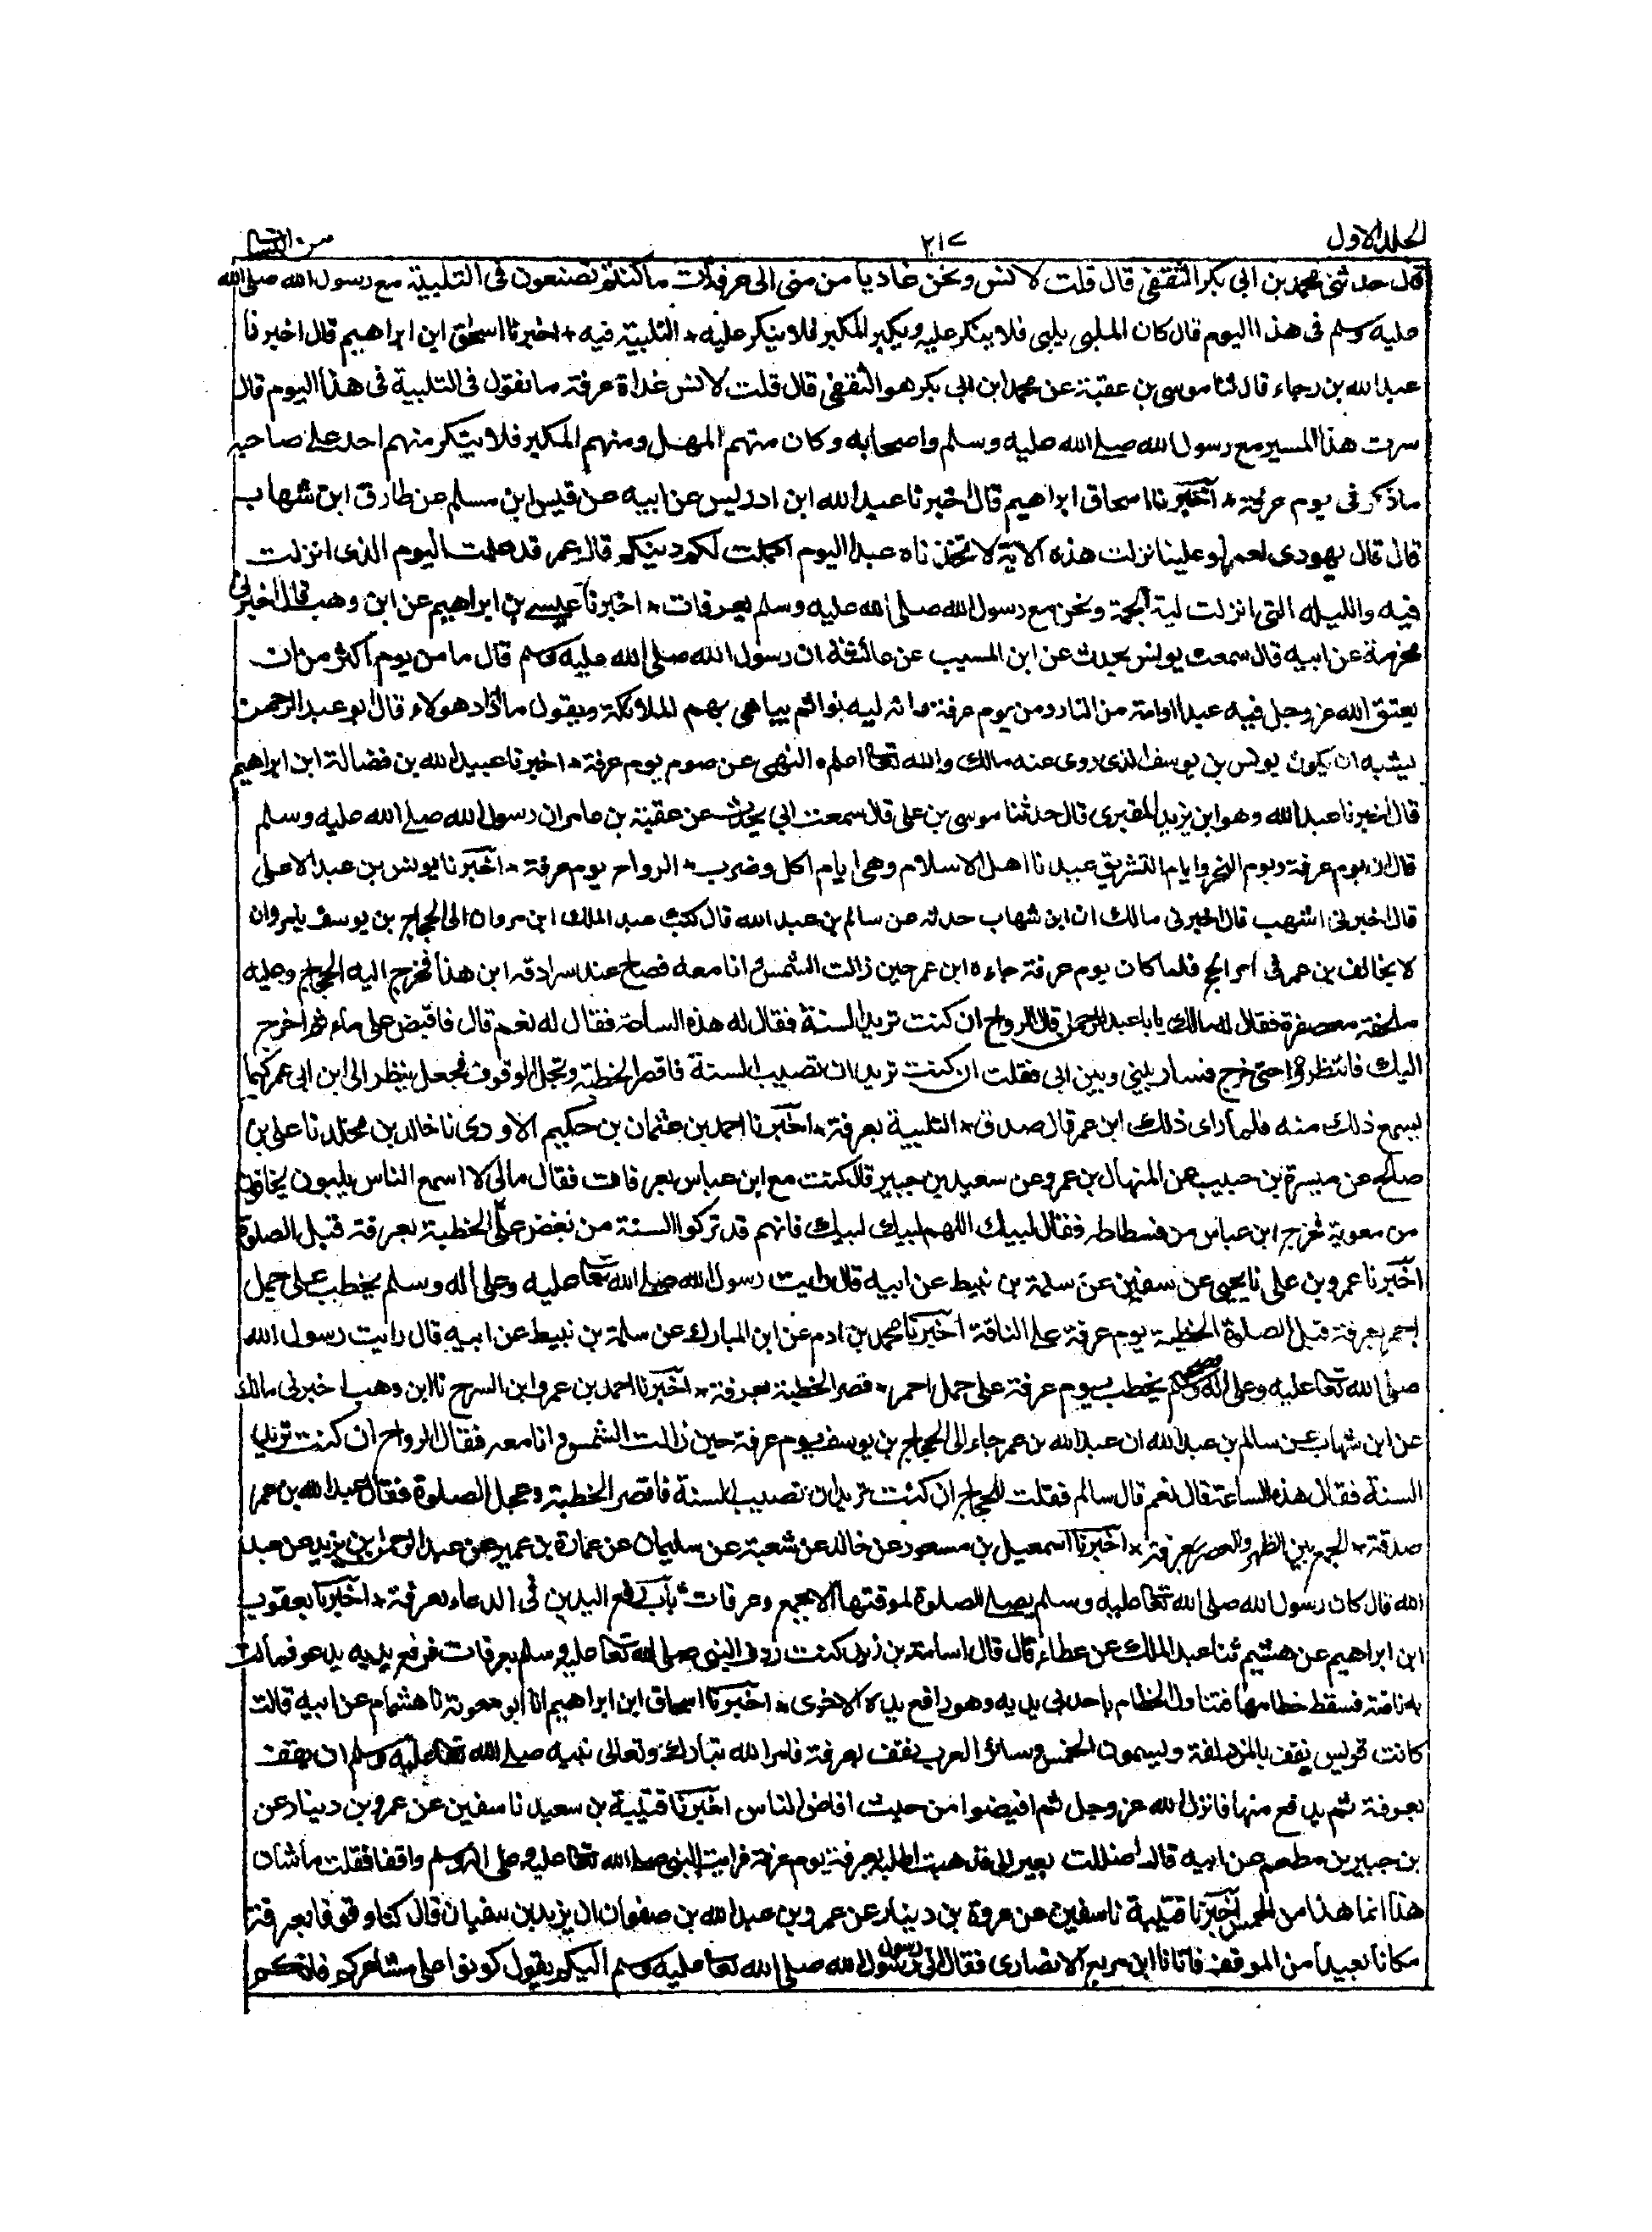 الجلد الاول
٢١٧
من النسائي
قال حدثنى محمد بن ابى بكر الثقفى قال قلت لانس ونحن غاديا من منى الى عرفات ما كنتم تصنعون فى التلبية مع رسول الله صلى الله
عليه وسلم فى هذا اليوم قال كان الملبى يلبى فلا ينكر عليه ويكبر المكبر فلا ينكر عليه * التلبية فيه * اخبرنا اسحق ابن ابراهيم قال اخبرنا
عبد الله بن رجاء قال ثنا موسى بن عقبة عن محمد ابن ابى بكر هو الثقفى قال قلت لانس غداة عرفة ما نقول فى التلبية فى هذا اليوم قال
سرت هذا المسير مع رسول الله صلے الله عليه وسلم واصحابه وكان منهم المهل ومنهم المكبر فلا ينكر منهم احد على صاحبه
ماذكر فى يوم عرفة * اخبرنا اسحاق ابراهيم قال اخبرنا عبد الله ابن ادريس عن ابيه عن قيس ابن مسلم عن طارق ابن شهاب
قال قال يهودى لعمر لو علينا نزلت هذه الاية لاتخذناه عيدا اليوم اكملت لكم دينكم قال عمر قد علمت اليوم الذى انزلت
فيه والليلة التى انزلت ليلة الجمعة ونحن مع رسول الله صلى الله عليه وسلم بعرفات * اخبرنا عيسے بن ابراهيم عن ابن وهب قال اخبرنى
مخرمة عن ابيه قال سمعت يونس يحدث عن ابن المسيب عن عائشة ان رسول الله صلى الله عليه وسلم قال ما من يوم اكثر من ان
يعتق الله عز وجل فيه عبدا اوامة من النار ومن يوم عرفة وانه ليدنو ثم يباهى بهم الملائكة ويقول ما اراد هولاء قال ابو عبد الرحمن
يشبه ان يكون يونس بن يوسف الذى روى عنه مالك والله تعا اعلم * النهى عن صوم يوم عرفة * اخبرنا عبيد الله بن فضالة ابن ابراهيم
قال اخبرنا عبد الله وهو ابن يزيد المقبرى قال حدثنا موسى بن على قال سمعت ابى يحدث عن عقبة بن عامر ان رسول الله صلے الله عليه وسلم
قال ان يوم عرفة ويوم النحر وايام التشريق عيدنا اهل الاسلام وهى ايام اكل وشرب * الرواح يوم عرفة * اخبرنا يونس بن عبد الاعلى
قال اخبرنى اشهب قال اخبرنى مالك ان ابن شهاب حدثه عن سالم بن عبد الله قال كتب عبد الملك ابن مروان الى الحجاج بن يوسف يامر وان
لا يخالف بن عمر فى امر الحج فلما كان يوم عرفة جاءه ابن عمر حين زالت الشمس وانا معه فصاح عند سرادقه اين هذا فخرج اليه الحجاج وعليه
ملحفة معصفرة فقال له مالك يا با عبد الرحمن قال الرواح ان كنت تريد السنة فقال له هذه الساعة فقال له نعم قال فاقبض على ماء ثم اخرج
اليك فانتظره حتى خرج فسار بينى وبين ابى فقلت ان كنت تريد ان تصيب السنة فاقصر الخطبة وعجل الوقوف فجعل ينظر الى ابن ابى عمر كيما
يسمع ذلك منه فلما راى ذلك ابن عمر قال صدق * التلبية بعرفة * اخبرنا احمد بن عثمان بن حكيم الاودى نا خالد بن مخلد نا على بن
صالح عن ميسرة بن حبيب عن المنهال بن عمرو عن سعيد بن جبير قال كنت مع ابن عباس بعرفات فقال مالى لا اسمع الناس يلبون يخافون
من معوية فخرج ابن عباس من فسطاطه فقال لبيك اللهم لبيك لبيك فانهم قد تركوا السنة من بغض على الخطبة بعرفة قبل الصلوة
اخبرنا عمرو بن على نا يحيى عن سفين عن سلمة بن نبيط عن ابيه قال رايت رسول الله صلے الله تعا عليه وعلى اله وسلم يخطب على جمل
احمر بعرفة قبل الصلوة الخطبة يوم عرفة على الناقة اخبرنا محمد بن ادم عن ابن المبارك عن سلمة بن نبيط عن ابيه قال رايت رسول الله
صلى الله تعا عليه وعلى اله وسلم يخطب يوم عرفة على جمل احمر * قصر الخطبة بعرفة * اخبرنا احمد بن عمرو ابن السرح نا ابن وهب اخبرنى مالك
عن ابن شهاب عن سالم بن عبد الله ان عبد الله بن عمر جاء الى الحجاج بن يوسف يوم عرفة حين زالت الشمس وانا معه فقال الرواح ان كنت تريد
السنة فقال هذه الساعة قال نعم قال سالم فقلت للحجاج ان كنت تريد ان تصيب السنة فاقصر الخطبة وعجل الصلوة فقال عبد الله بن عمر
صدقة * الجمع بين الظهر والعصر بعرفة * اخبرنا اسمعيل بن مسعود عن خالد عن شعبة عن سليمان عن عمارة بن عمير عن عبد الرحمن بن يزيد عن عبد
الله قال كان رسول الله صلى الله تعا عليه وسلم يصلے الصلوة لموقتها الا بجمع وعرفات باب رفع اليدين فى الدعاء بعرفة * اخبرنا يعقوب
ابن ابراهيم عن هشيم ثنا عبد الملك عن عطاء قال قال اسامة بن زيد كنت ردف النبى صلى الله تعا عليه وسلم بعرفات فرفع يديه يدعو فمالت
به ناقته فسقط خطامها فتناول الخطام باحدى يديه وهو رافع يده الاخرى * اخبرنا اسحاق ابن ابراهيم انا ابو معوية نا هشام عن ابيه قالت
كانت قريش يقف بالمزدلفة ويسمون الحمس وسائر العرب يقف بعرفة فامر الله تبارك وتعالى نبيه صلے الله تعا عليه وسلم ان يقف
بعرفة ثم يدفع منها فانزل الله عز وجل ثم افيضوا من حيث افاض الناس اخبرنا قتيبة بن سعيد نا سفين عن عمرو بن دينار عن
بن جبير بن مطعم عن ابيه قال اضللت بعيرا لى فذهبت اطلبه بعرفة يوم عرفة فرايت النبى صلے الله تعا عليه وعلى اله وسلم واقفا فقلت ما شان
هذا انما هذا من الحمس اخبرنا قتيبة نا سفين عن عروة بن دينار عن عمرو بن عبد الله بن صفوان ان يزيد بن سفيان قال كنا وقوفا بعرفة
مكانا بعيدا من الموقف فاتانا ابن مربع الانصارى فقال انى رسول رسول الله صلى الله تعا عليه وسلم اليكم يقول كونوا على مشاعركم فانكم